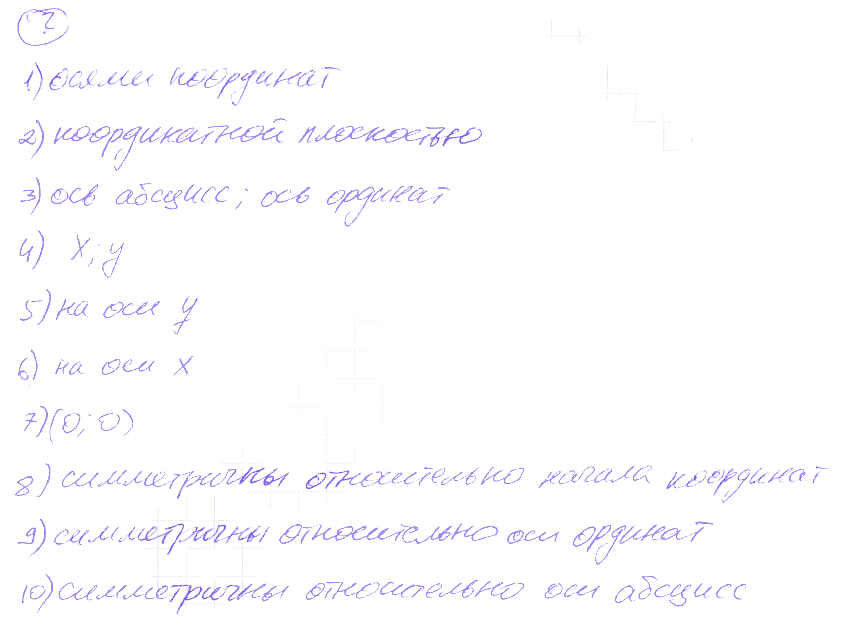 ?
1) осями координат
2) координатной плоскостью
3) ось абсцисс; ось ординат
4) x; y
5) на оси y
6) на оси x
7) (0; 0)
8) симметричны относительно начала координат
9) симметричны относительно оси ординат
10) симметричны относительно оси абсцисс